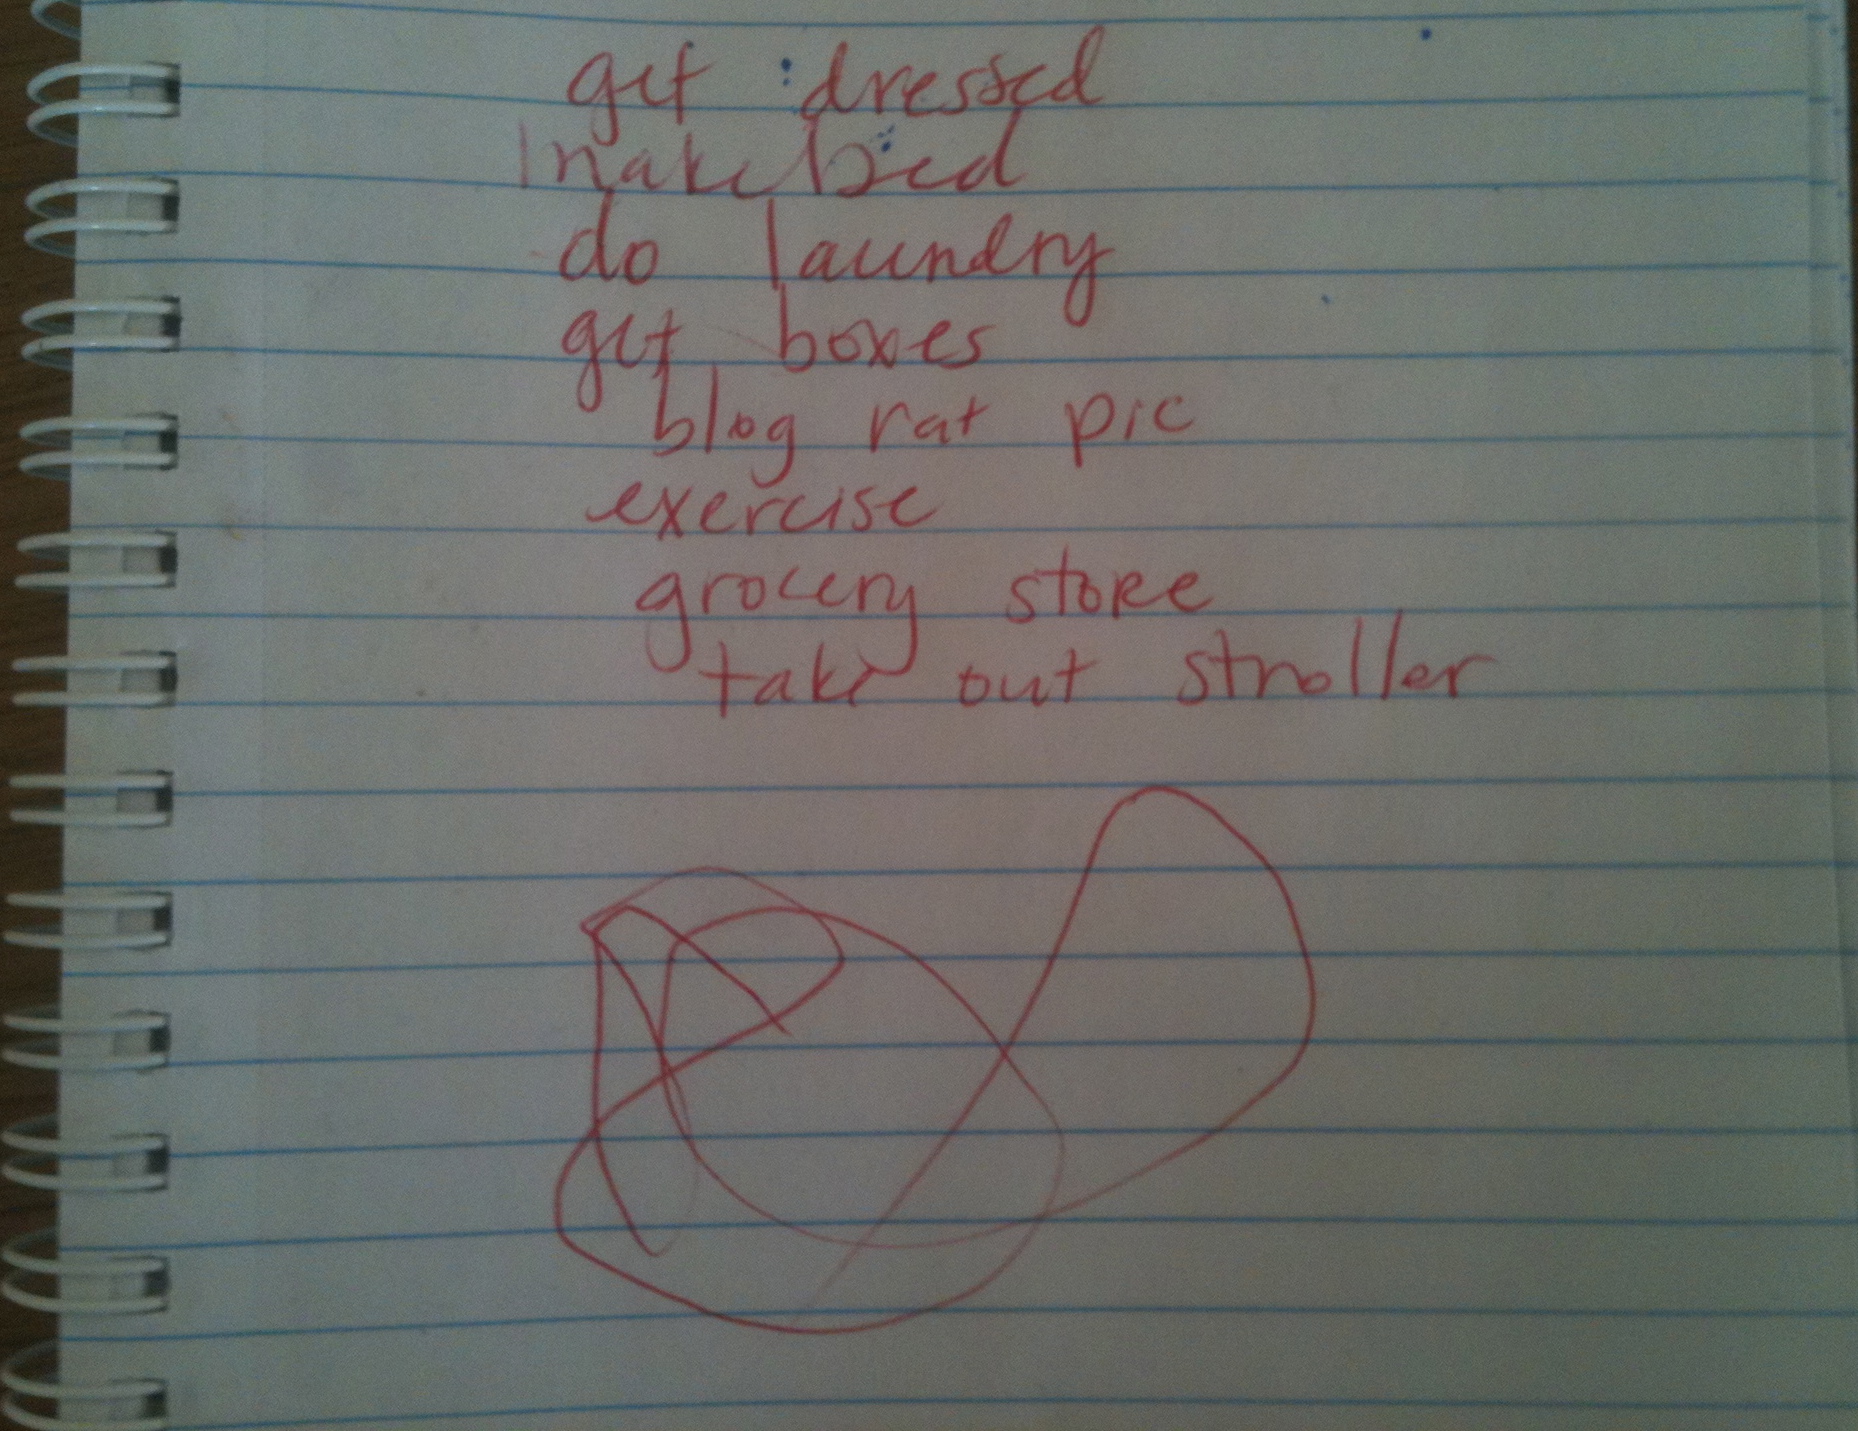 get dressed
make bed
do laundry
get boxes
blog rat pic
exercise
grocery store
take out stroller